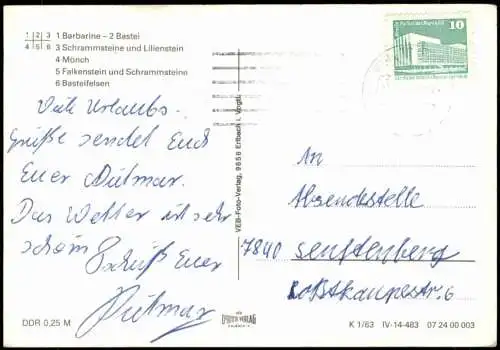 1 2 3 1 Barbarine – 2 Bastei
4 5 6 3 Schrammsteine und Lilienstein
4 Mönch
5 Falkenstein und Schrammsteine
6 Basteifelsen
10
Viele Urlaubs-
grüße sendet Euch
Euer Dietmar.
Das Wetter ist sehr
schön
Euer
Dietmar
VEB-Foto-Verlag, 9656 Erlbach i. Vogtl.
An
Absendestelle
7840 Senftenberg
6
DDR 0,25 M
K 1/63 IV-14-483 07 24 00 003